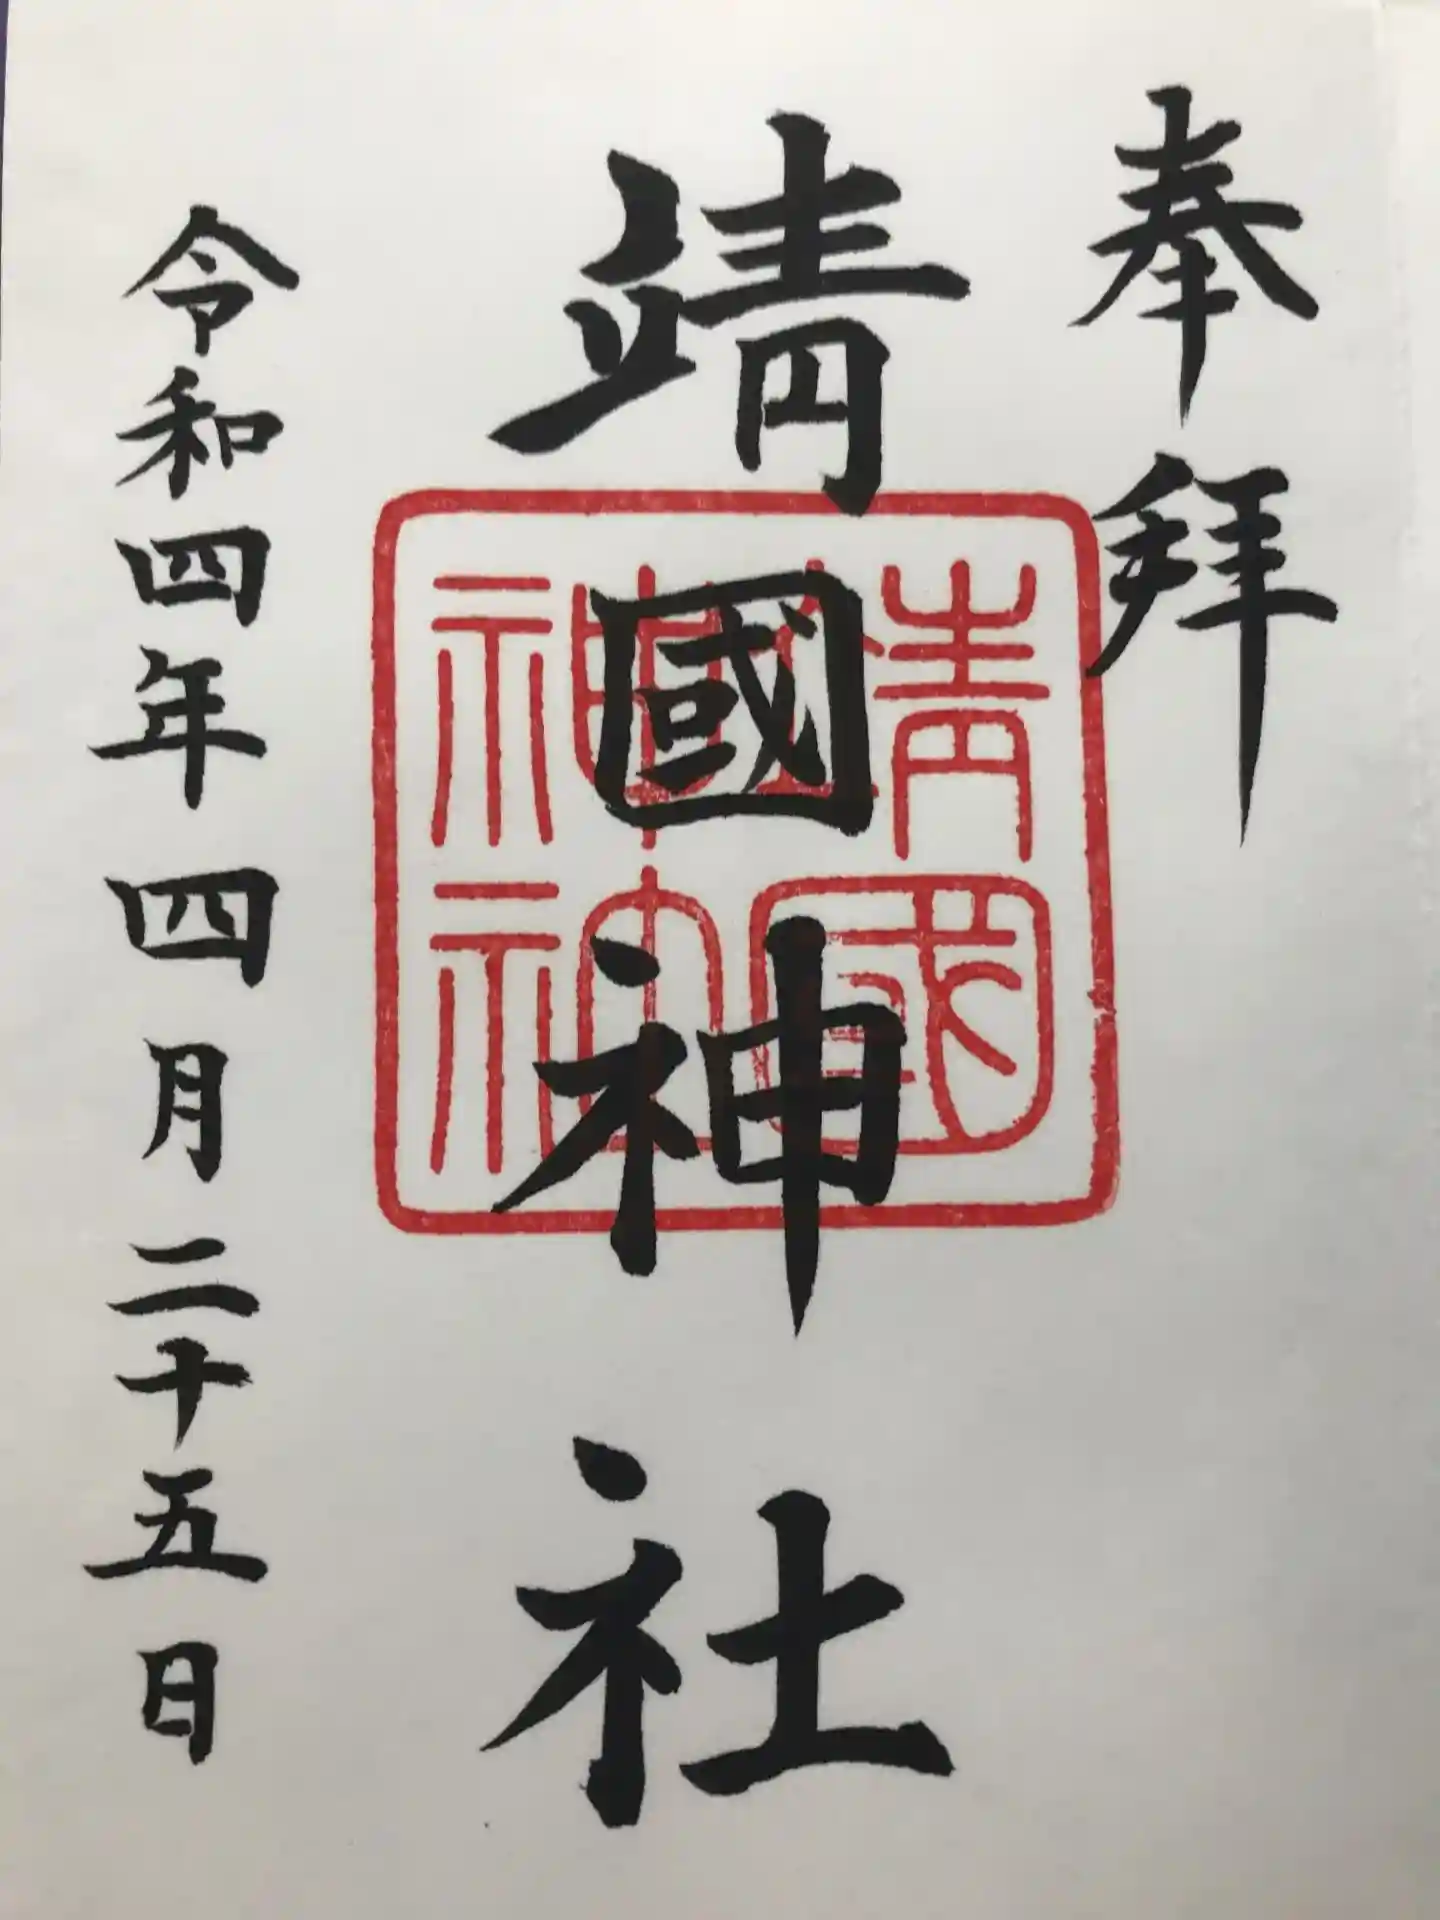 奉拜
靖國神社
靖國神社
令和四年四月二十五日